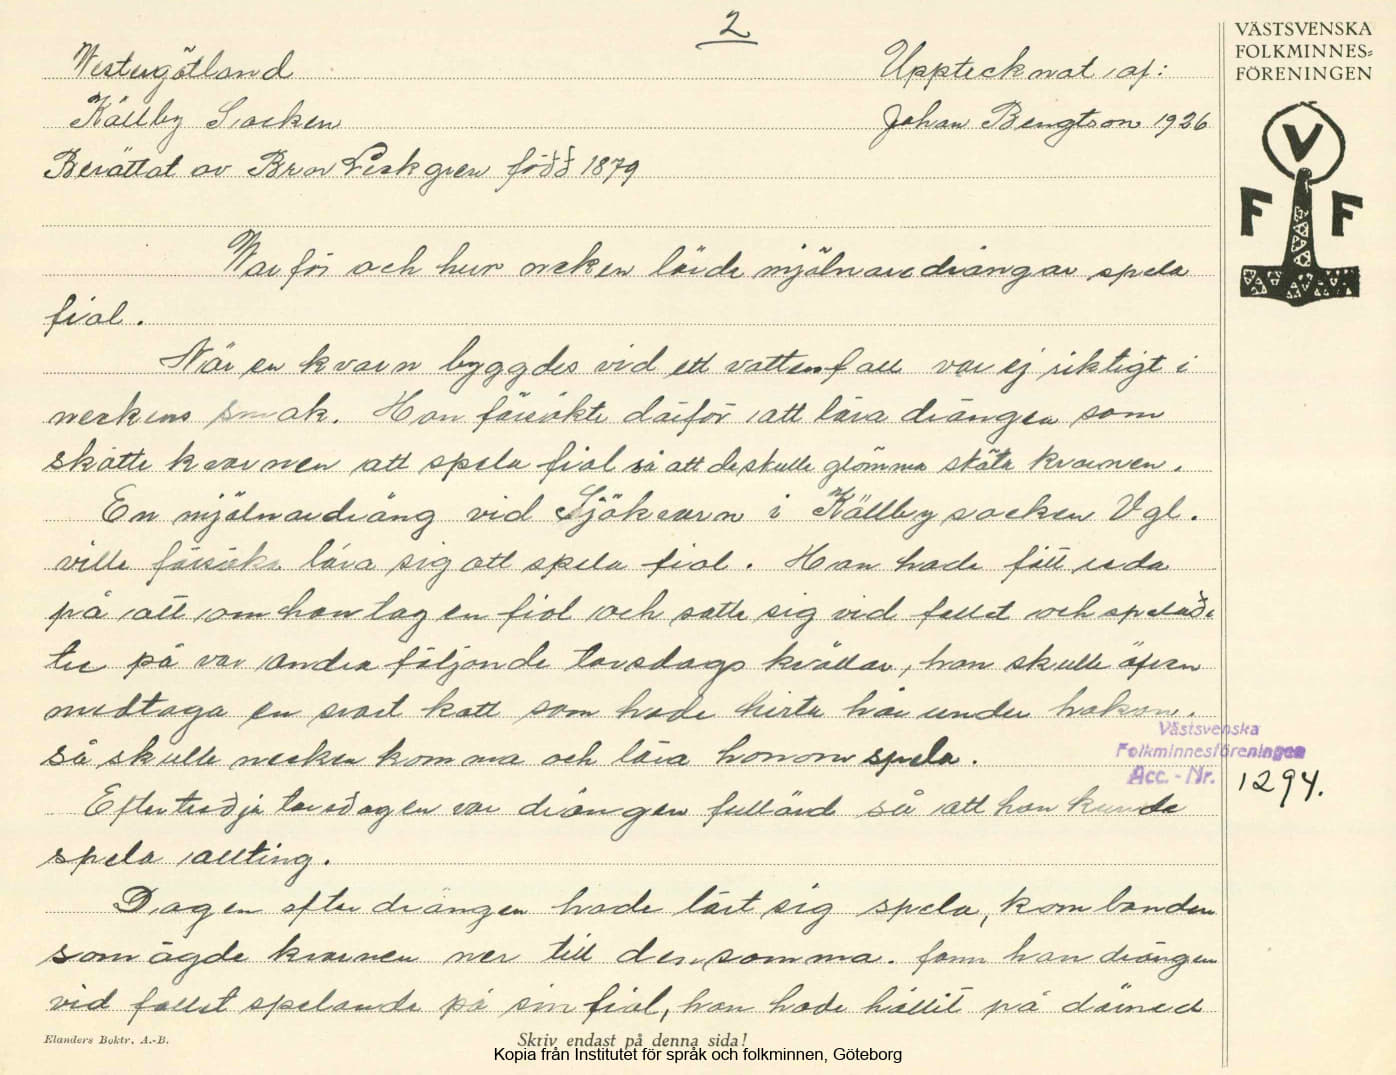 2
Westergötland
Upptecknat af:
Källby Socken
Johan Bengtson 1926
Berättat av Bror Leekgren född 1879
VÄSTSVENSKA
FOLKMINNES-
FÖRENINGEN
V
F F
Warför och hur necken lärde mjölnaredrängar spela
fiol.
När en kvarn byggdes vid ett vattenfall var ej riktigt i
neckens smak. Han försökte därför att lära drängen som
skötte kvarnen att spela fiol så att de skulle glömma sköta kvarnen.
En mjölnardräng vid Sjökvarn i Källby socken Vgl.
ville försöka lära sig att spela fiol. Han hade fått reda
på att om han tog en fiol och satte sig vid fallet och spelade
tre på var andra följande torsdags kvällar, han skulle äfven
medtaga en svart katt som hade hvita hår under hakan.
så skulle necken komma och lära honom spela.
Västsvenska
Folkminnesföreningen
Acc. - Nr. 1294.
Efter tredje torsdagen var drängen fullärd så att han kunde
spela allting.
Dagen efter drängen hade lärt sig spela, kom bonden
som ägde kvarnen ner till densamma. fann han drängen
vid fallet spelande på sin fiol, han hade hållit på därmed
Elanders Boktr. A.-B.
Skriv endast på denna sida!
Kopia från Institutet för språk och folkminnen, Göteborg